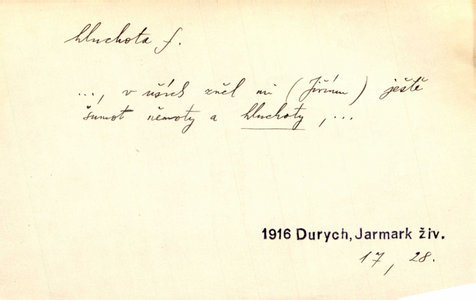 hluchota f.
..., v uších zněl mi (Jiřímu) ještě
šumot němoty a hluchoty, ...
1916 Durych, Jarmark živ.
17, 28.